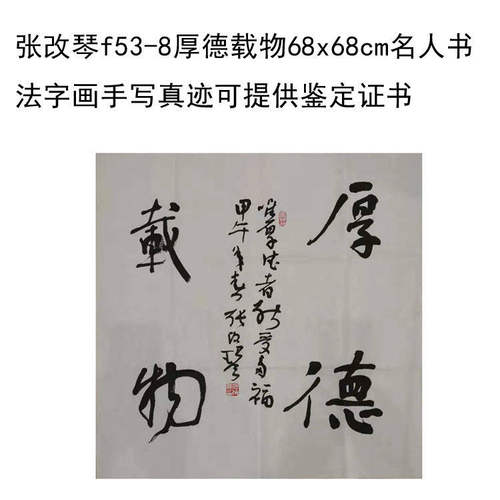 张改琴f53-8厚德载物68x68cm名人书
法字画手写真迹可提供鉴定证书
厚德
載物
唯厚德者能受多福
甲午年春张改琴